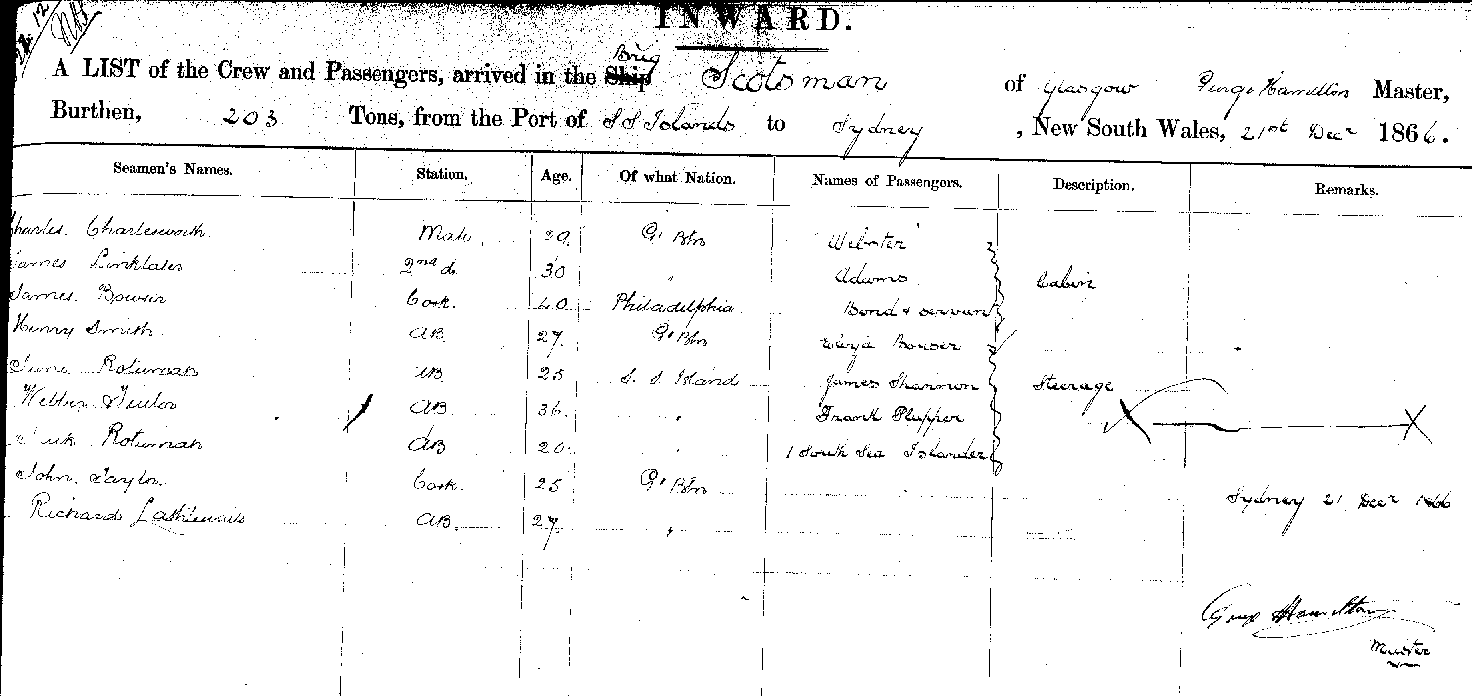 INWARD.
A LIST of the Crew and Passengers, arrived in the Ship Brig Scotsman of Glasgow George Hamilton Master,
Burthen, 203 Tons, from the Port of S S Islands to Sydney, New South Wales, 21st Decr 1866.
Seamen's Names. Station. Age. Of what Nation. Names of Passengers. Description. Remarks.
Charles Charlesworth Mate 29 Gt Btn Webster
James Linklater 2nd do 30 " Adams Cabin
James Cook 40 Philadelphia Bond & servant
Henry Smith AB 27 Gt Btn Bowser
Rotumah AB 25 S. S. Island James Shannon Steerage
AB 36 " Frank
Rotumah AB 20 " 1 South Sea Islander
John Taylor Cook 25 Gt Btn
Sydney 21 Decr 1866
Richard AB 27 "
George Hamilton
Master